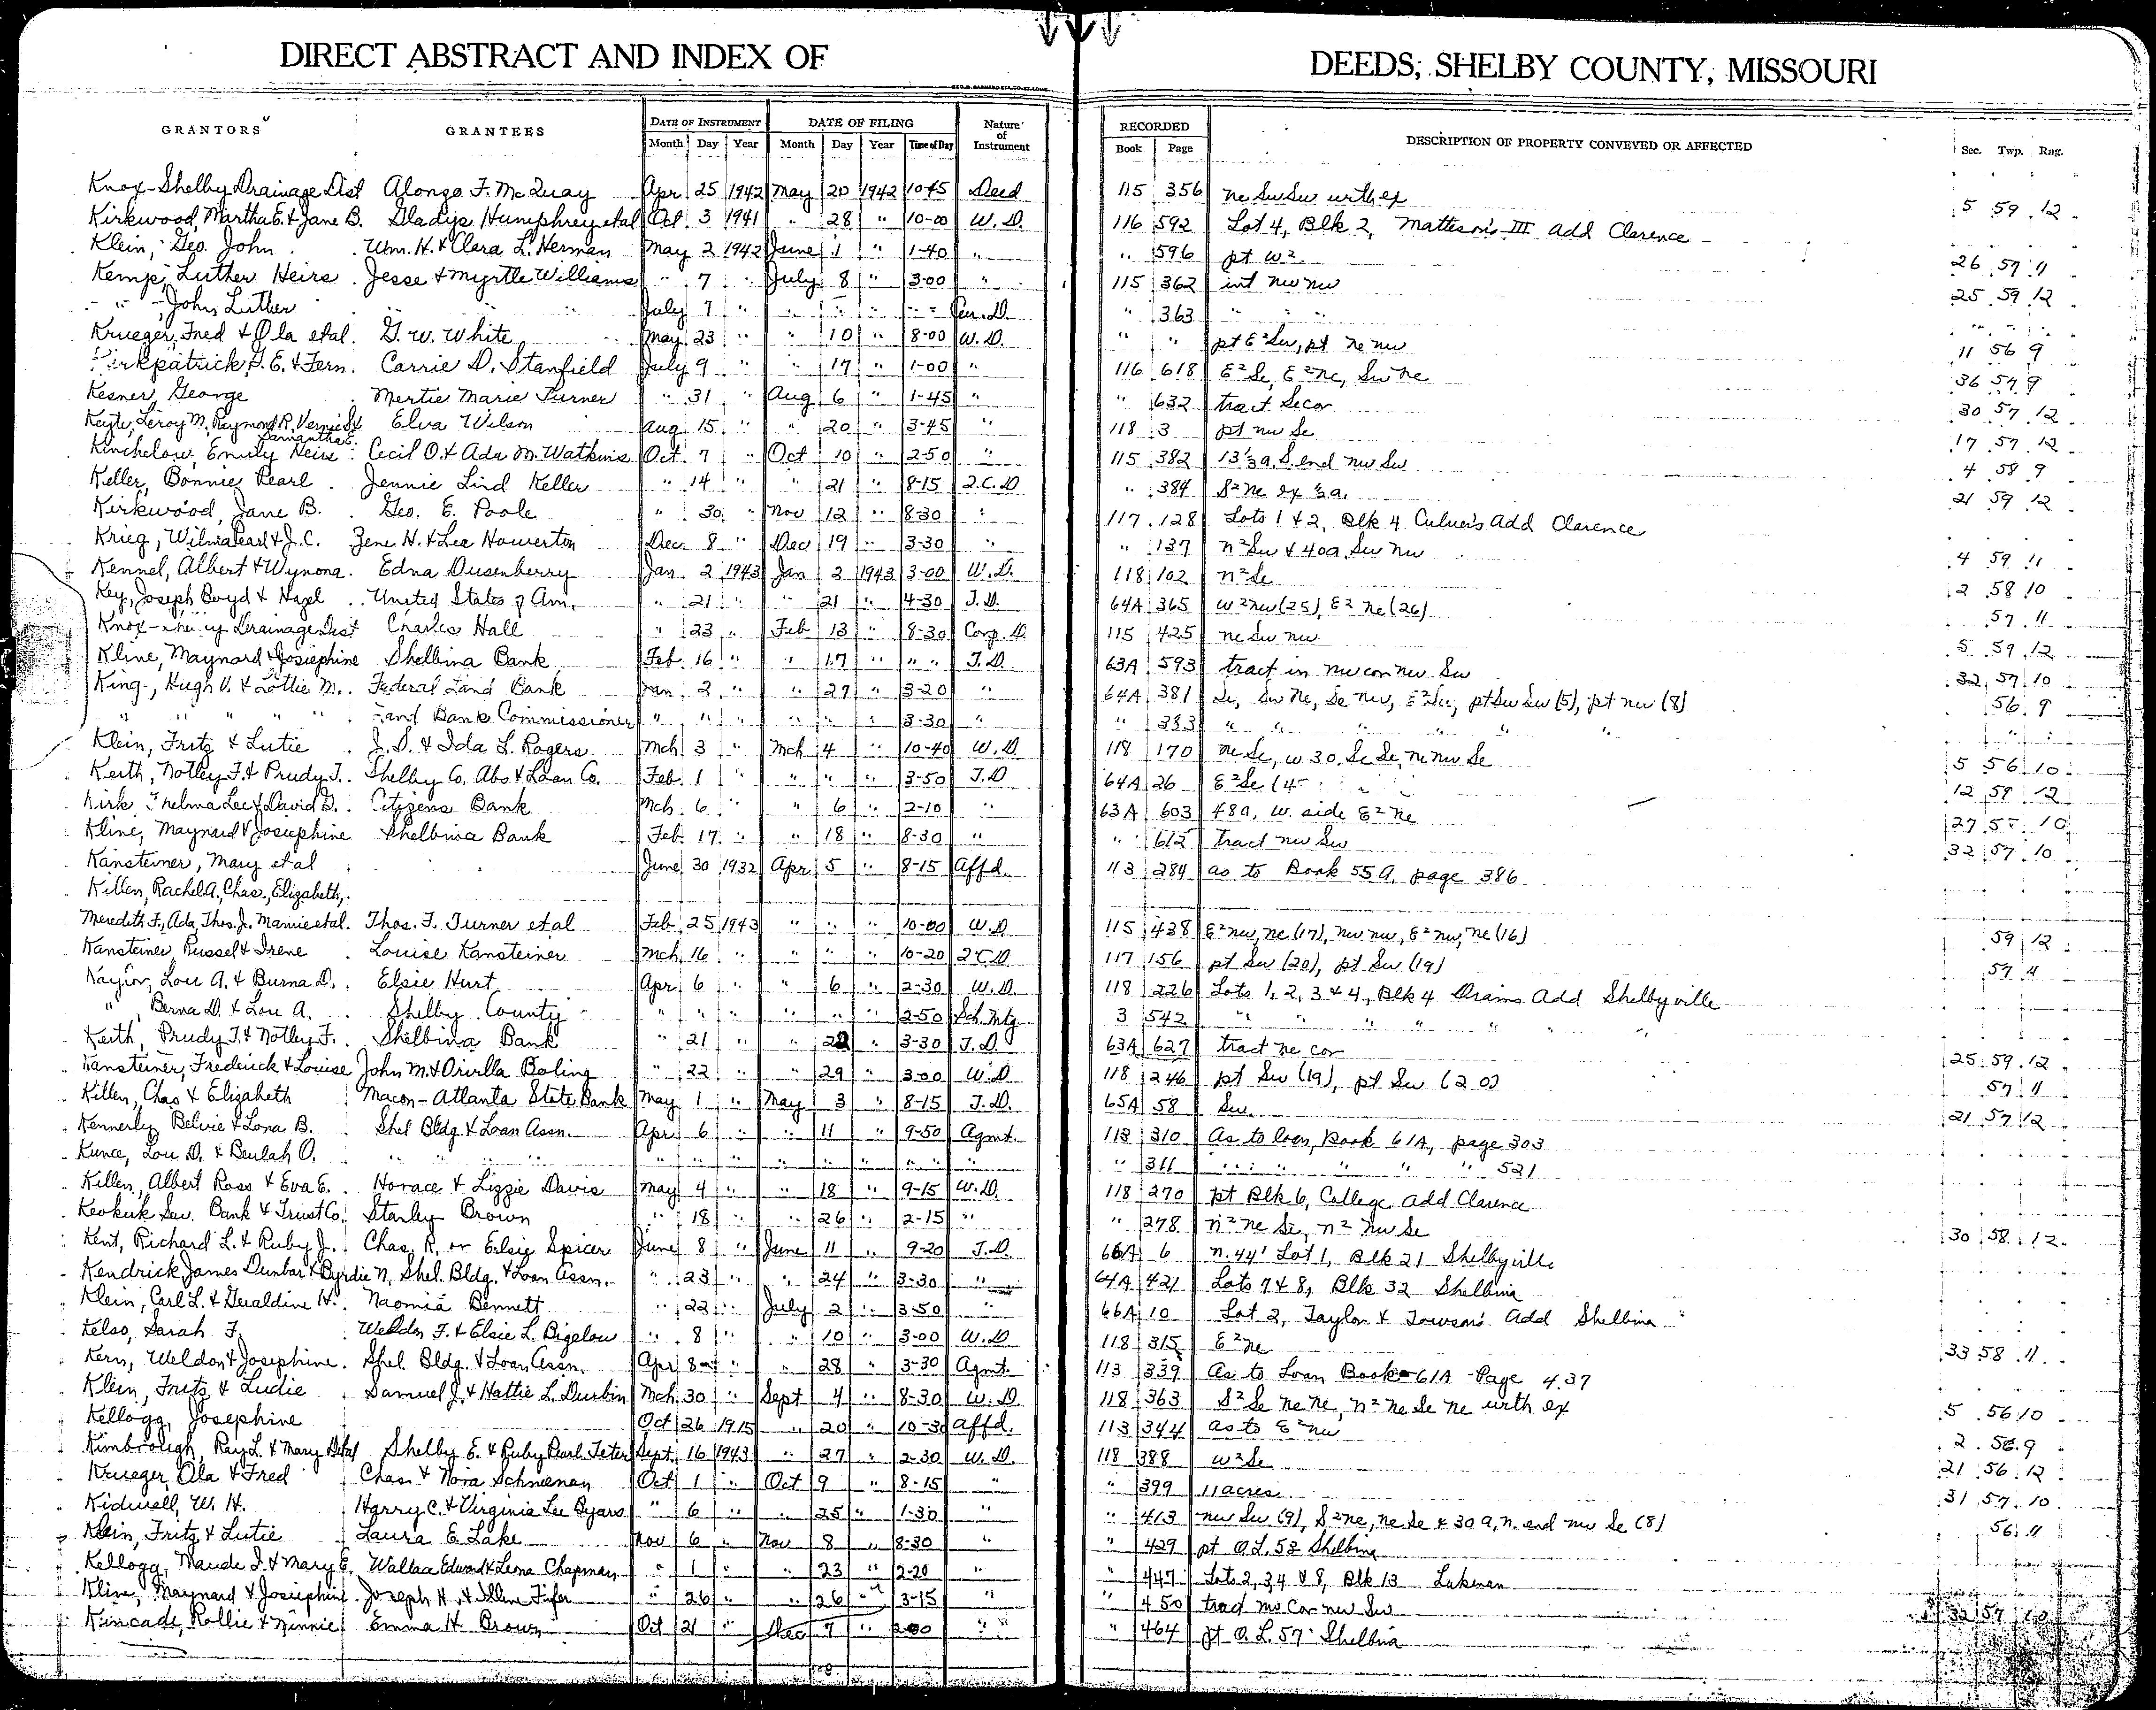 DIRECT ABSTRACT AND INDEX OF DEEDS, SHELBY COUNTY, MISSOURI
GRANTORS GRANTEES DATE OF INSTRUMENT DATE OF FILING Nature of Instrument RECORDED DESCRIPTION OF PROPERTY CONVEYED OR AFFECTED Sec. Twp. Rng.
Month Day Year Month Day Year Time of Day Book Page
Knox-Shelby Drainage Dist Alonzo F. McQuay Apr 25 1942 May 20 1942 10-45 Deed 115 356 ne Sw Sw with ex 5 59 12
Kirkwood, Martha E. & Jane B. Gladys Humphrey etal Oct 3 1941 " 28 " 10-00 W. D. 116 592 Lot 4, Blk 2, Matteson's III Add Clarence
Klein, Geo. John Wm. H. & Clara L. Herman May 2 1942 June 1 " 1-40 " " 596 pt W² 26 57 11
Kemp, Luther Heirs Jesse & Myrtle Williams " 7 " July 8 " 3-00 " 115 362 int nw nw 25 59 12
" , John Luther " " July 7 " " " " " " " 363 " " " " " "
Krueger, Fred & Ola etal. G. W. White May 23 " " 10 " 8-00 W. D. " " pt E² Sw, pt ne nw 11 56 9
Kirkpatrick, G. E. & Fern. Carrie D. Stanfield July 9 " " 17 " 1-00 " 116 618 E² Se, E² ne, Sw ne 36 57 9
Kesner, George Mertie Marie Turner " 31 " Aug 6 " 1-45 " " 632 tract Se cor 30 57 12
Leroy M, Raymond R, Elva Wilson Aug 15 " " 20 " 3-45 " 118 3 pt nw Se 17 57 12
Kincheloe, Emily Samantha E. Heirs Cecil O. & Ada M. Watkins Oct 7 " Oct 10 " 2-50 " 115 382 13⅓ a. S. end nw Sw 4 58 9
Keller, Bonnie Pearl Jennie Lind Keller " 14 " " 21 " 8-15 Q.C.D " 384 S² ne ex ½ a. 21 59 12
Kirkwood, Jane B. Geo. E. Poole " 30 " Nov 12 " 8-30 " 117 128 Lots 1 & 2, Blk 4 Culver's Add Clarence
Krieg, Wilma Pearl & J. C. Zene H. & Lea Howerton Dec 8 " Dec 19 " 3-30 " " 137 n² Sw & 40a. Sw nw 4 59 11
Kennel, Albert & Wynona. Edna Dusenberry Jan. 2 1943 Jan 2 1943 3-00 W. D. 118 102 n² Se 2 58 10
Key, Joseph Boyd & Hazel United States of Am. " 21 " " 21 " 4-30 T. D. 64A 365 W² nw (25), E² ne (26) 57 11
Knox- Drainage Dist Charles Hall " 23 " Feb 13 " 8-30 Corp. D. 115 425 ne Sw nw 5 59 12
Kline, Maynard & Josephine Shelbina Bank Feb. 16 " " 17 " " " T. D. 63A 593 tract in nw cor nw Sw 32 57 10
King, Hugh V. & Lottie M. Federal Land Bank Jan. 2 " " 27 " 3-20 " 64A 381 Se, Sw ne, Se nw, E² Sw, pt Sw Sw (5), pt nw (8) 56 9
" " " " Land Bank Commissioner " " " " " " 3-30 " " 383 " " " " " " "
Klein, Fritz & Lutie J. S. & Ida L. Rogers Mch 3 " Mch 4 " 10-40 W. D. 118 170 ne Se, w 30, Se Se, ne nw Se 5 56 10
Keith, Notley F. & Prudy T. Shelby Co. Abs & Loan Co. Feb. 1 " " " " 3-50 T. D 64A 26 E² Se 12 59 12
Kirk Thelma Lee & David D. Citizens Bank Mch. 6 " " 6 " 2-10 " 63A 603 48a. w. side E² ne 27 10
Kline, Maynard & Josephine Shelbina Bank Feb 17 " " 18 " 8-30 " " 612 tract nw Sw 32 57 10
Kansteiner, Mary etal June 30 1932 Apr 5 " 8-15 Affd. 113 284 as to Book 55A, page 386
Killen, Rachel A., Chas., Elizabeth,
Meredith F., Ada, Thos. J. Mamie etal. Thos. F. Turner etal Feb 25 1943 " " " 10-00 W. D 115 438 E² nw, ne (17), nw nw, E² nw, ne (16) 59 12
Kansteiner, Russel & Irene Louise Kansteiner Mch 16 " " " " 10-20 Q C D 117 156 pt Sw (20), pt Sw (19) 57 11
Naylor, Lou A. & Burna D. Elsie Hurt Apr 6 " " 6 " 2-30 W. D. 118 226 Lots 1, 2, 3 & 4, Blk 4 Drains Add Shelbyville
" , Berna D. & Lou A. Shelby County " " " " " " 2-50 Sch. Mtg. 3 542 " " " " " "
Keith, Prudy T. & Notley F. Shelbina Bank " 21 " " 22 " 3-30 T. D. 63A 627 tract ne cor 25 59 12
Kansteiner, Frederick & Louise John M. & Orvilla Boling " 22 " " 29 " 3-00 W. D 118 246 pt Sw (19), pt Sw (20) 57 11
Killen, Chas & Elizabeth Macon-Atlanta State Bank May 1 " May 3 " 8-15 T. D. 65A 58 Sw. 21 57 12
Kennerly, Belvie & Lona B. Shel Bldg. & Loan Assn. Apr 6 " " 11 " 9-50 Agmt. 113 310 As to loan, Book 61A, page 303
Kunce, Lou D. & Beulah O. " " " " " " " " " " " " 311 " " " " " " 521
Killen, Albert Ross & Eva E. Horace & Lizzie Davis May 4 " " 18 " 9-15 W. D. 118 270 pt Blk 6, College Add Clarence
Keokuk Sav. Bank & Trust Co. Stanley Brown " 18 " " 26 " 2-15 " " 278 n² ne Se, n² nw Se 30 58 12
Kent, Richard L. & Ruby J. Chas. R. or Elsie Spicer June 8 " June 11 " 9-20 T. D. 66A 6 n. 44' Lot 1, Blk 21 Shelbyville
Kendrick, James Dunbar & Byrdie N. Shel. Bldg. & Loan Assn. " 23 " " 24 " 3-30 " 64A 421 Lots 7 & 8, Blk 32 Shelbina
Klein, Carl L. & Geraldine H. Naomia Bennett " 22 " July 2 " 3-50 " 66A 10 Lot 2, Taylor & Towson's Add Shelbina
Kelso, Sarah F. Weldon F. & Elsie L. Bigelow " 8 " " 10 " 3-00 W. D. 118 315 E² ne 33 58 11
Kern, Weldon & Josephine. Shel. Bldg. & Loan Assn. Apr 8 " " 28 " 3-30 Agmt. 113 339 As to Loan Book 61A - Page 437
Klein, Fritz & Ludie Samuel J. & Hattie L. Durbin Mch 30 " Sept 4 " 8-30 W. D. 118 363 S² Se ne ne, n² ne Se ne with ex 5 56 10
Kellogg, Josephine Oct 26 1915 " 20 " 10-30 Affd. 113 344 as to E² nw 2 56 9
Kimbrough, Ray L. & Mary etal Shelby E. & Ruby Pearl Teter Sept 16 1943 " 27 " 2-30 W. D. 118 388 W² Se 21 56 12
Krueger, Ola & Fred Chas. & Nora Schneeman Oct 1 " Oct 9 " 8-15 " " 399 11 acres 31 57 10
Kidwell, W. H. Harry C. & Virginia Lee Byars " 6 " " 25 " 1-30 " " 413 nw Sw (9), S² ne, ne Se & 30 a, n. end nw Se (8) 56 11
Klein, Fritz & Lutie Laura E. Lake Nov 6 " Nov 8 " 8-30 " " 429 pt O. L. 53 Shelbina
Kellogg, Maude I. & Mary E. Wallace Edward & Leona Chapman " 1 " " 23 " 2-20 " " 447 Lots 2, 3, 4 & 8, Blk 13 Lakenan
Kline, Maynard & Josephine Joseph H. & Illene Fifer " 26 " " 26 " 3-15 " " 450 tract nw Cor nw Sw 32 57 10
Kincade, Rollie & Minnie Emma H. Brown Oct 21 " Dec 7 " 2-00 " " 464 pt O. L. 57 Shelbina